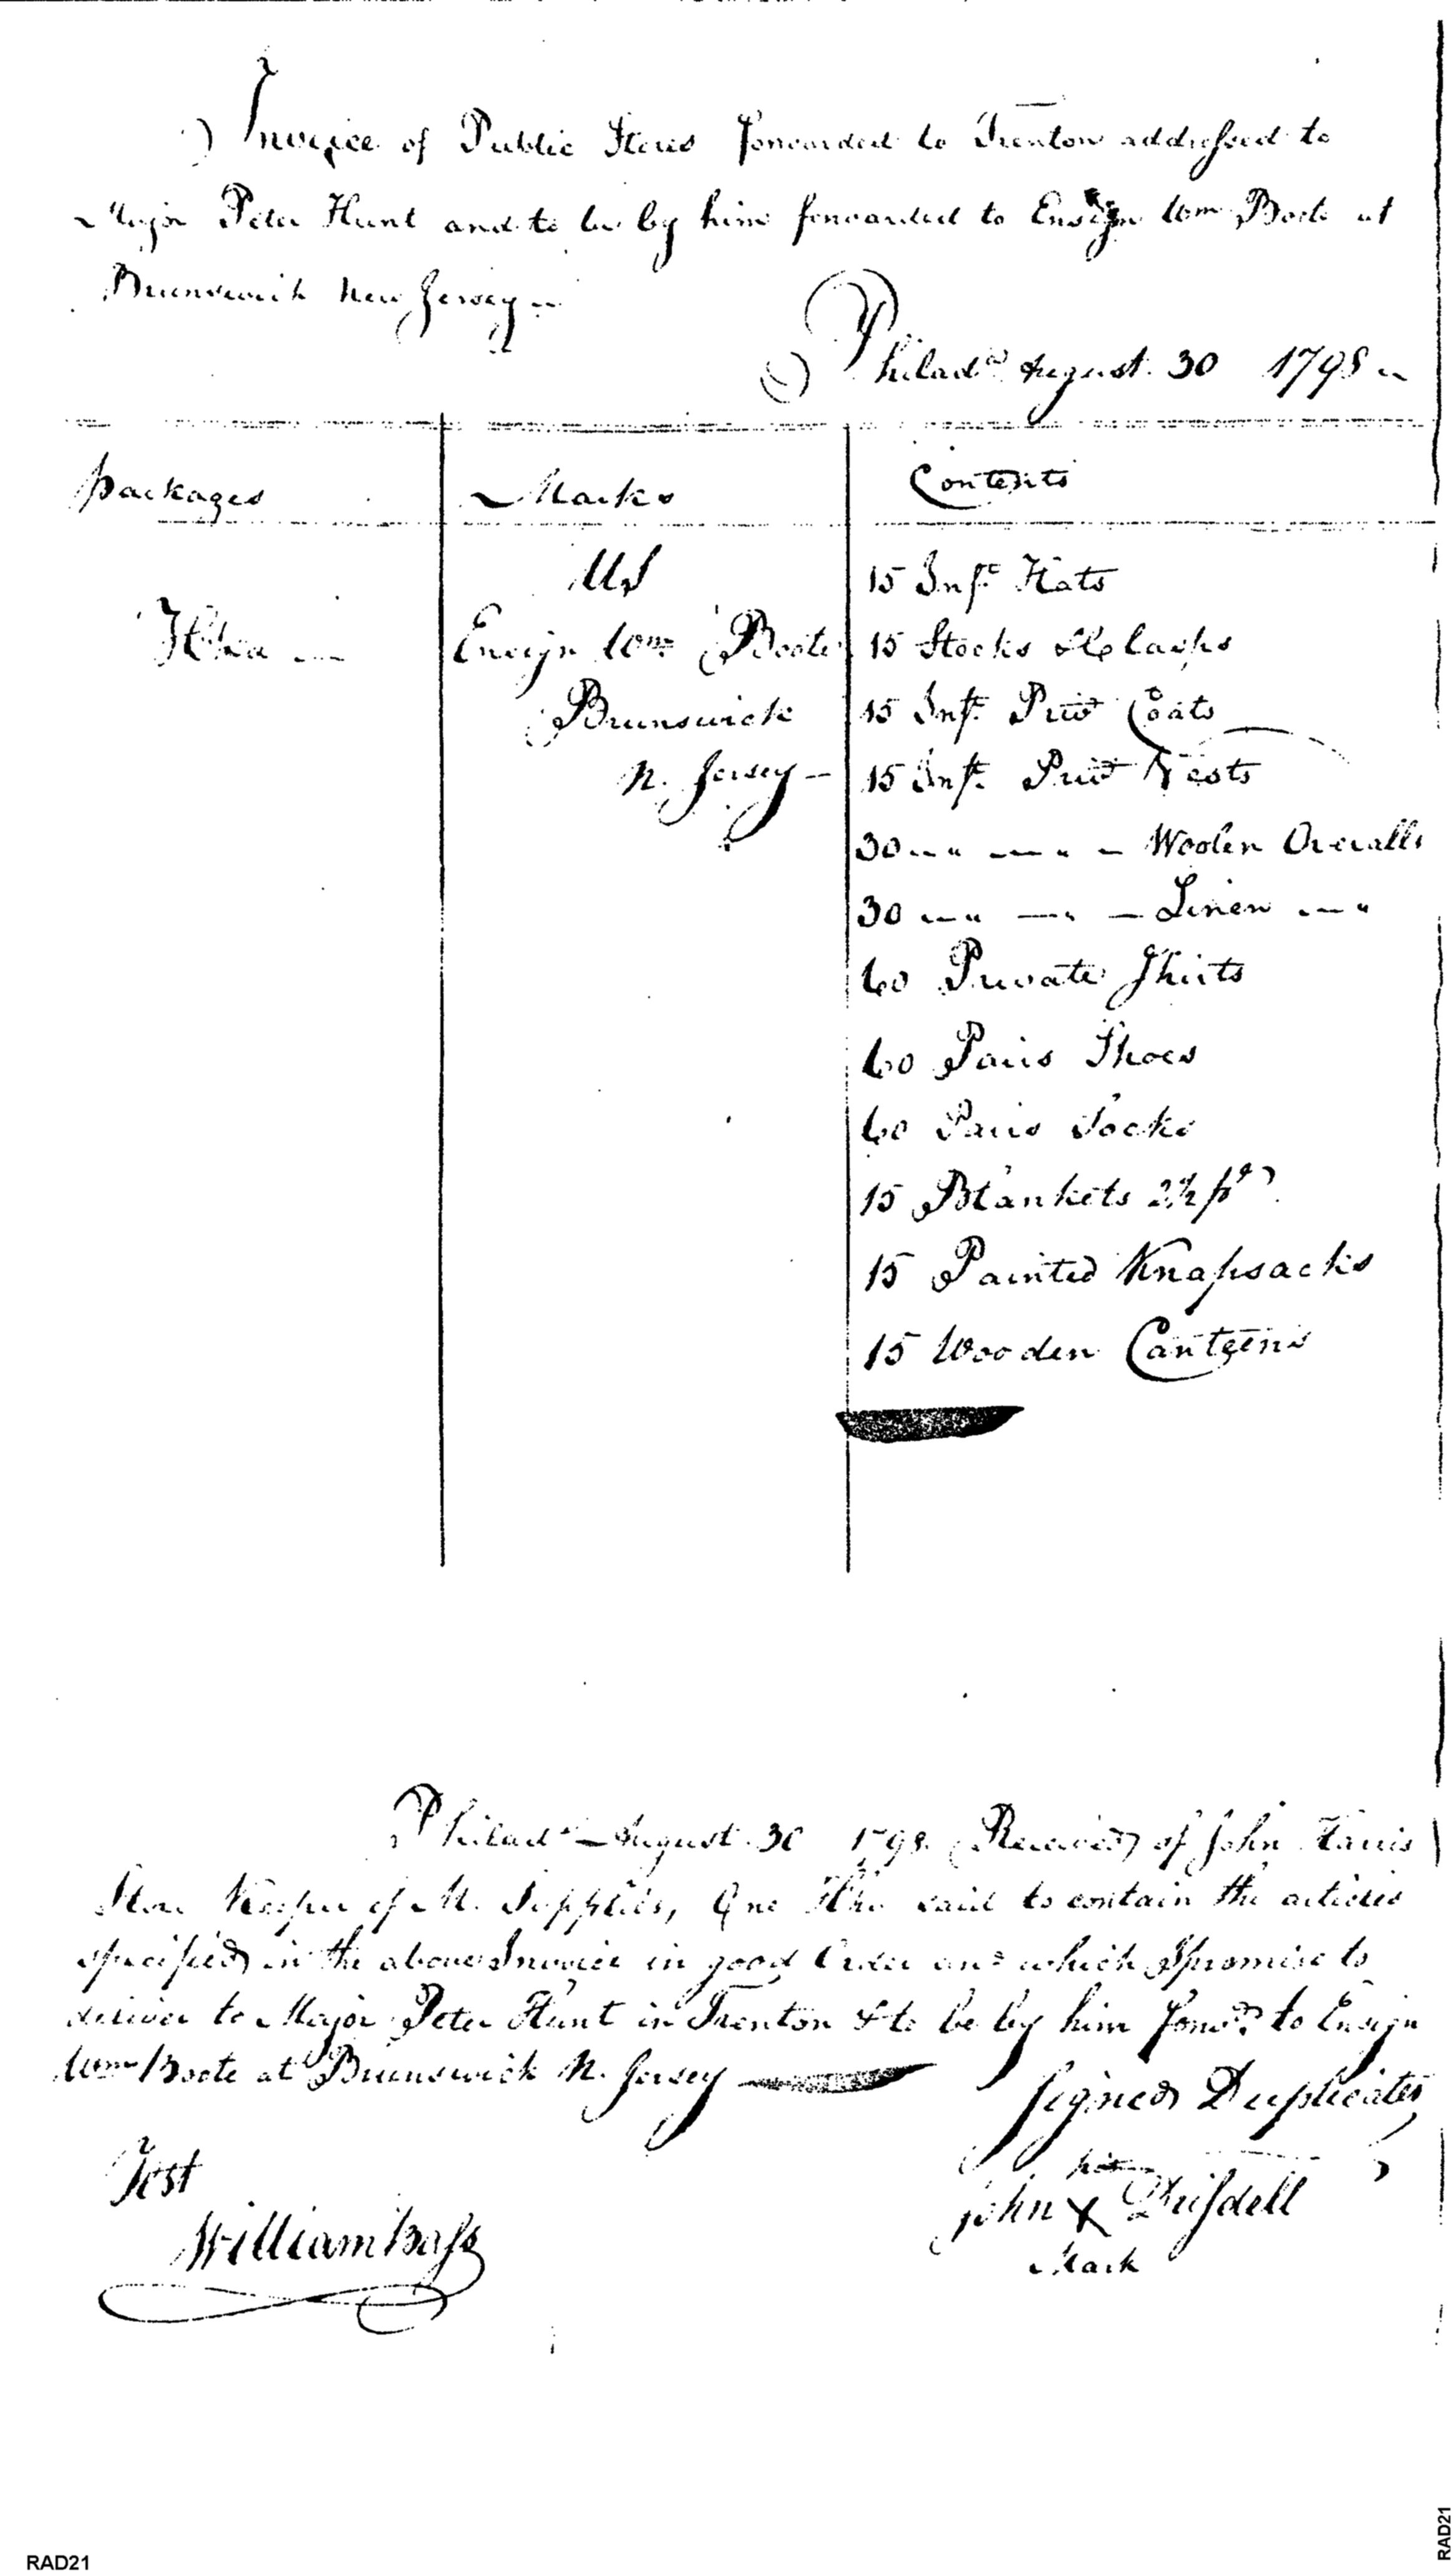 Invoice of Public Stores forwarded to Trenton addressed to
Major Peter Hunt and to be by him forwarded to Ensign Wm Boote at
Brunswick New Jersey
Philada August 30 1798
Packages Marks Contents
US 15 Inft Hats
Ensign Wm Boote 15 Stocks & Clasps
Brunswick 15 Inft. Privt Coats
N. Jersey 15 Inft. Privt Vests
30 " " Woolen Overalls
30 " " Linen "
60 Private Shirts
60 Pairs Shoes
60 Pairs Socks
15 Blankets 2½ pt
15 Painted Knapsacks
15 Wooden Canteens
Philada August 30 1798 Received of John Harris
Store Keeper of M. Supplies, One said to contain the articles
specified in the above Invoice in good Order which I promise to
deliver to Major Peter Hunt in Trenton & to be by him forwd. to Ensign
Wm Boote at Brunswick N. Jersey
Signed Duplicates
Test his
John X Drisdell
William Bass
Mark
RAD21
RAD21